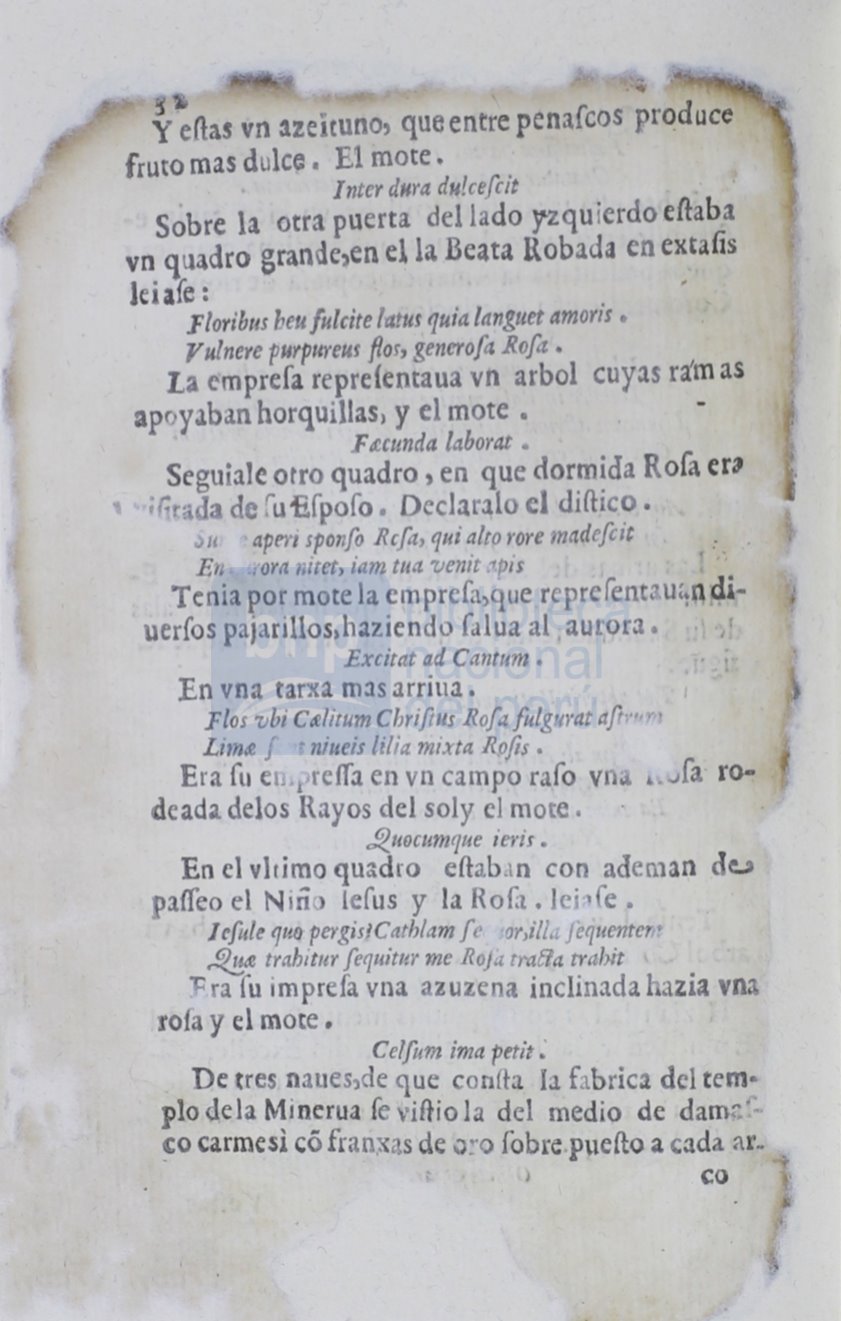 32
Y eſtas vn azeituno, que entre penaſcos produce
fruto mas dulce. El mote.
Inter dura dulceſcit
Sobre la otra puerta del lado yzquierdo eſtaba
vn quadro grande, en el la Beata Robada en extaſis
leiaſe:
Floribus heu fulcite latus quia languet amoris.
Vulnere purpureus flos, generoſa Roſa.
La empreſa repreſentaua vn arbol cuyas ramas
apoyaban horquillas, y el mote.
Fæcunda laborat.
Seguiale otro quadro, en que dormida Roſa era
de ſu Eſpoſo. Declaralo el diſtico.
aperi sponſo Roſa, qui alto rore madeſcit
nitet, iam tua venit apis
Tenia por mote la empreſa, que repreſentauan di-
uerſos pajarillos, haziendo ſalua al aurora.
Excitat ad Cantum.
En vna tarxa mas arriua.
Flos vbi Cælitum Chriſtus Roſa fulgurat
Limæ niueis lilia mixta Roſis.
Era ſu empreſſa en vn campo raſo vna Roſa ro-
deada delos Rayos del sol y el mote.
Quocumque ieris.
En el vltimo quadro eſtaban con ademan de
paſſeo el Niño Ieſus y la Roſa. leiaſe.
Ieſule quo pergis? Cathlam ſequentem
Quæ trahitur ſequitur me Roſa tracta trahit
Era ſu impreſa vna azuzena inclinada hazia vna
roſa y el mote.
Celſum ima petit.
De tres naues, de que conſta la fabrica del tem-
plo dela Minerua ſe viſtio la del medio de damaſ-
co carmesì cõ franxas de oro ſobre pueſto a cada ar-
co
bnp
biblioteca
nacional
del perú